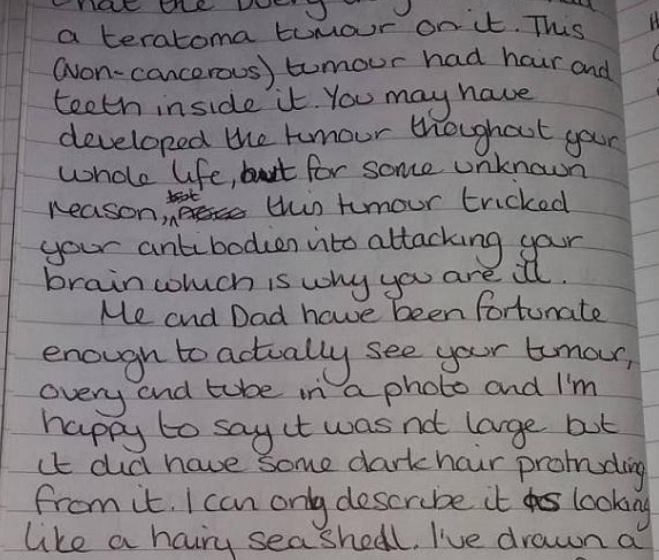 that the overy
a teratoma tumour on it. This
(Non-cancerous) tumour had hair and
teeth inside it. You may have
developed the tumour thoughout your
whole life, but for some unknown
reason, but this tumour tricked
your antibodies into attacking your
brain which is why you are ill.
Me and Dad have been fortunate
enough to actually see your tumour,
overy and tube in a photo and I'm
happy to say it was not large but
it did have some dark hair protruding
from it. I can only describe it as looking
like a hairy seashell. I've drawn a